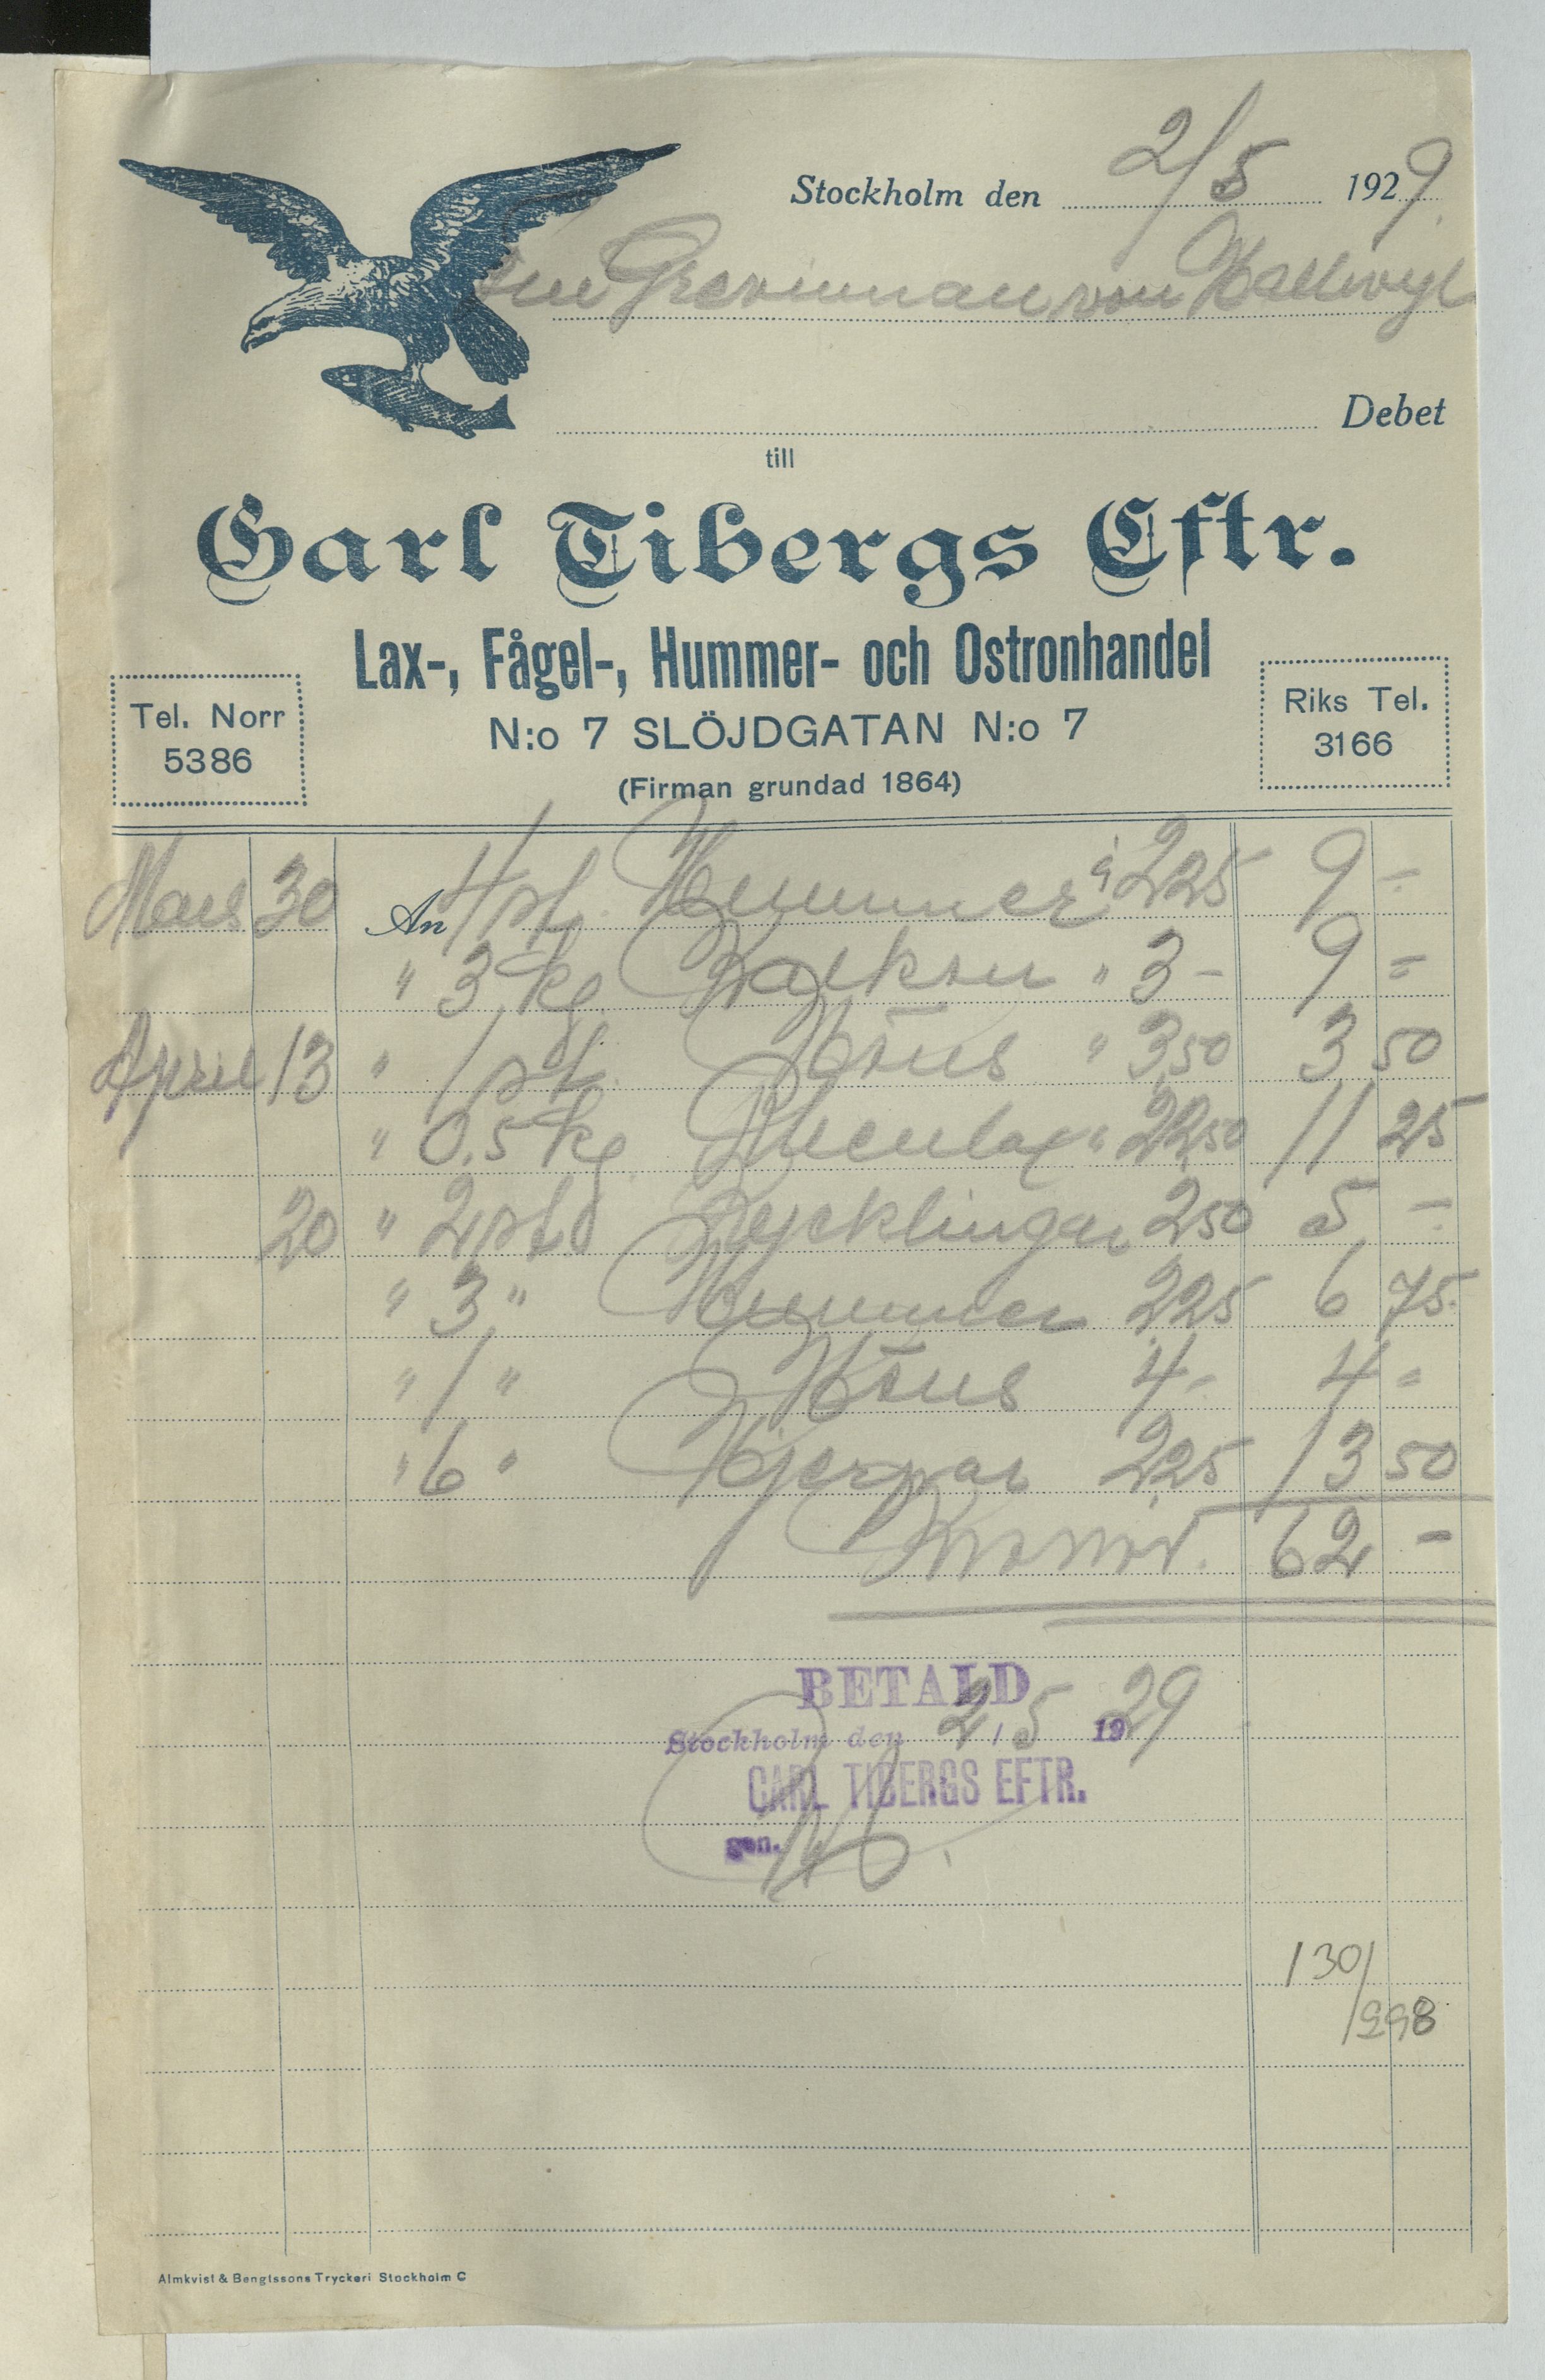 Stockholm den 2/5 1929.
Grevinnan von Hallwyl
Debet
till
Carl Tibergs Eftr.
Lax-, Fågel-, Hummer- och Ostronhandel
Tel. Norr
5386
N:o 7 SLÖJDGATAN N:o 7
Riks Tel.
3166
(Firman grundad 1864)
Mars 30 An 4 st. Hummer à 2,25 9 -
" 3 kg. Kalkon " 3 - 9 =
April 13 " 1 st. Höns " 3,50 3 50
" 0,5 kg. Rhenlax " 22,50 11 25
20 " 2 st. Kycklingar 2,50 5 -
" 3 " Hummer 2,25 6 75
" 1 " Höns 4 - 4 =
" 6 " Hjerpar 2,25 13 50
Kronor. 62 -
BETALD
Stockholm den 2/5 1929
CARL TIBERGS EFTR.
gen.
130/
/298
Almkvist & Bengtssons Tryckeri Stockholm C